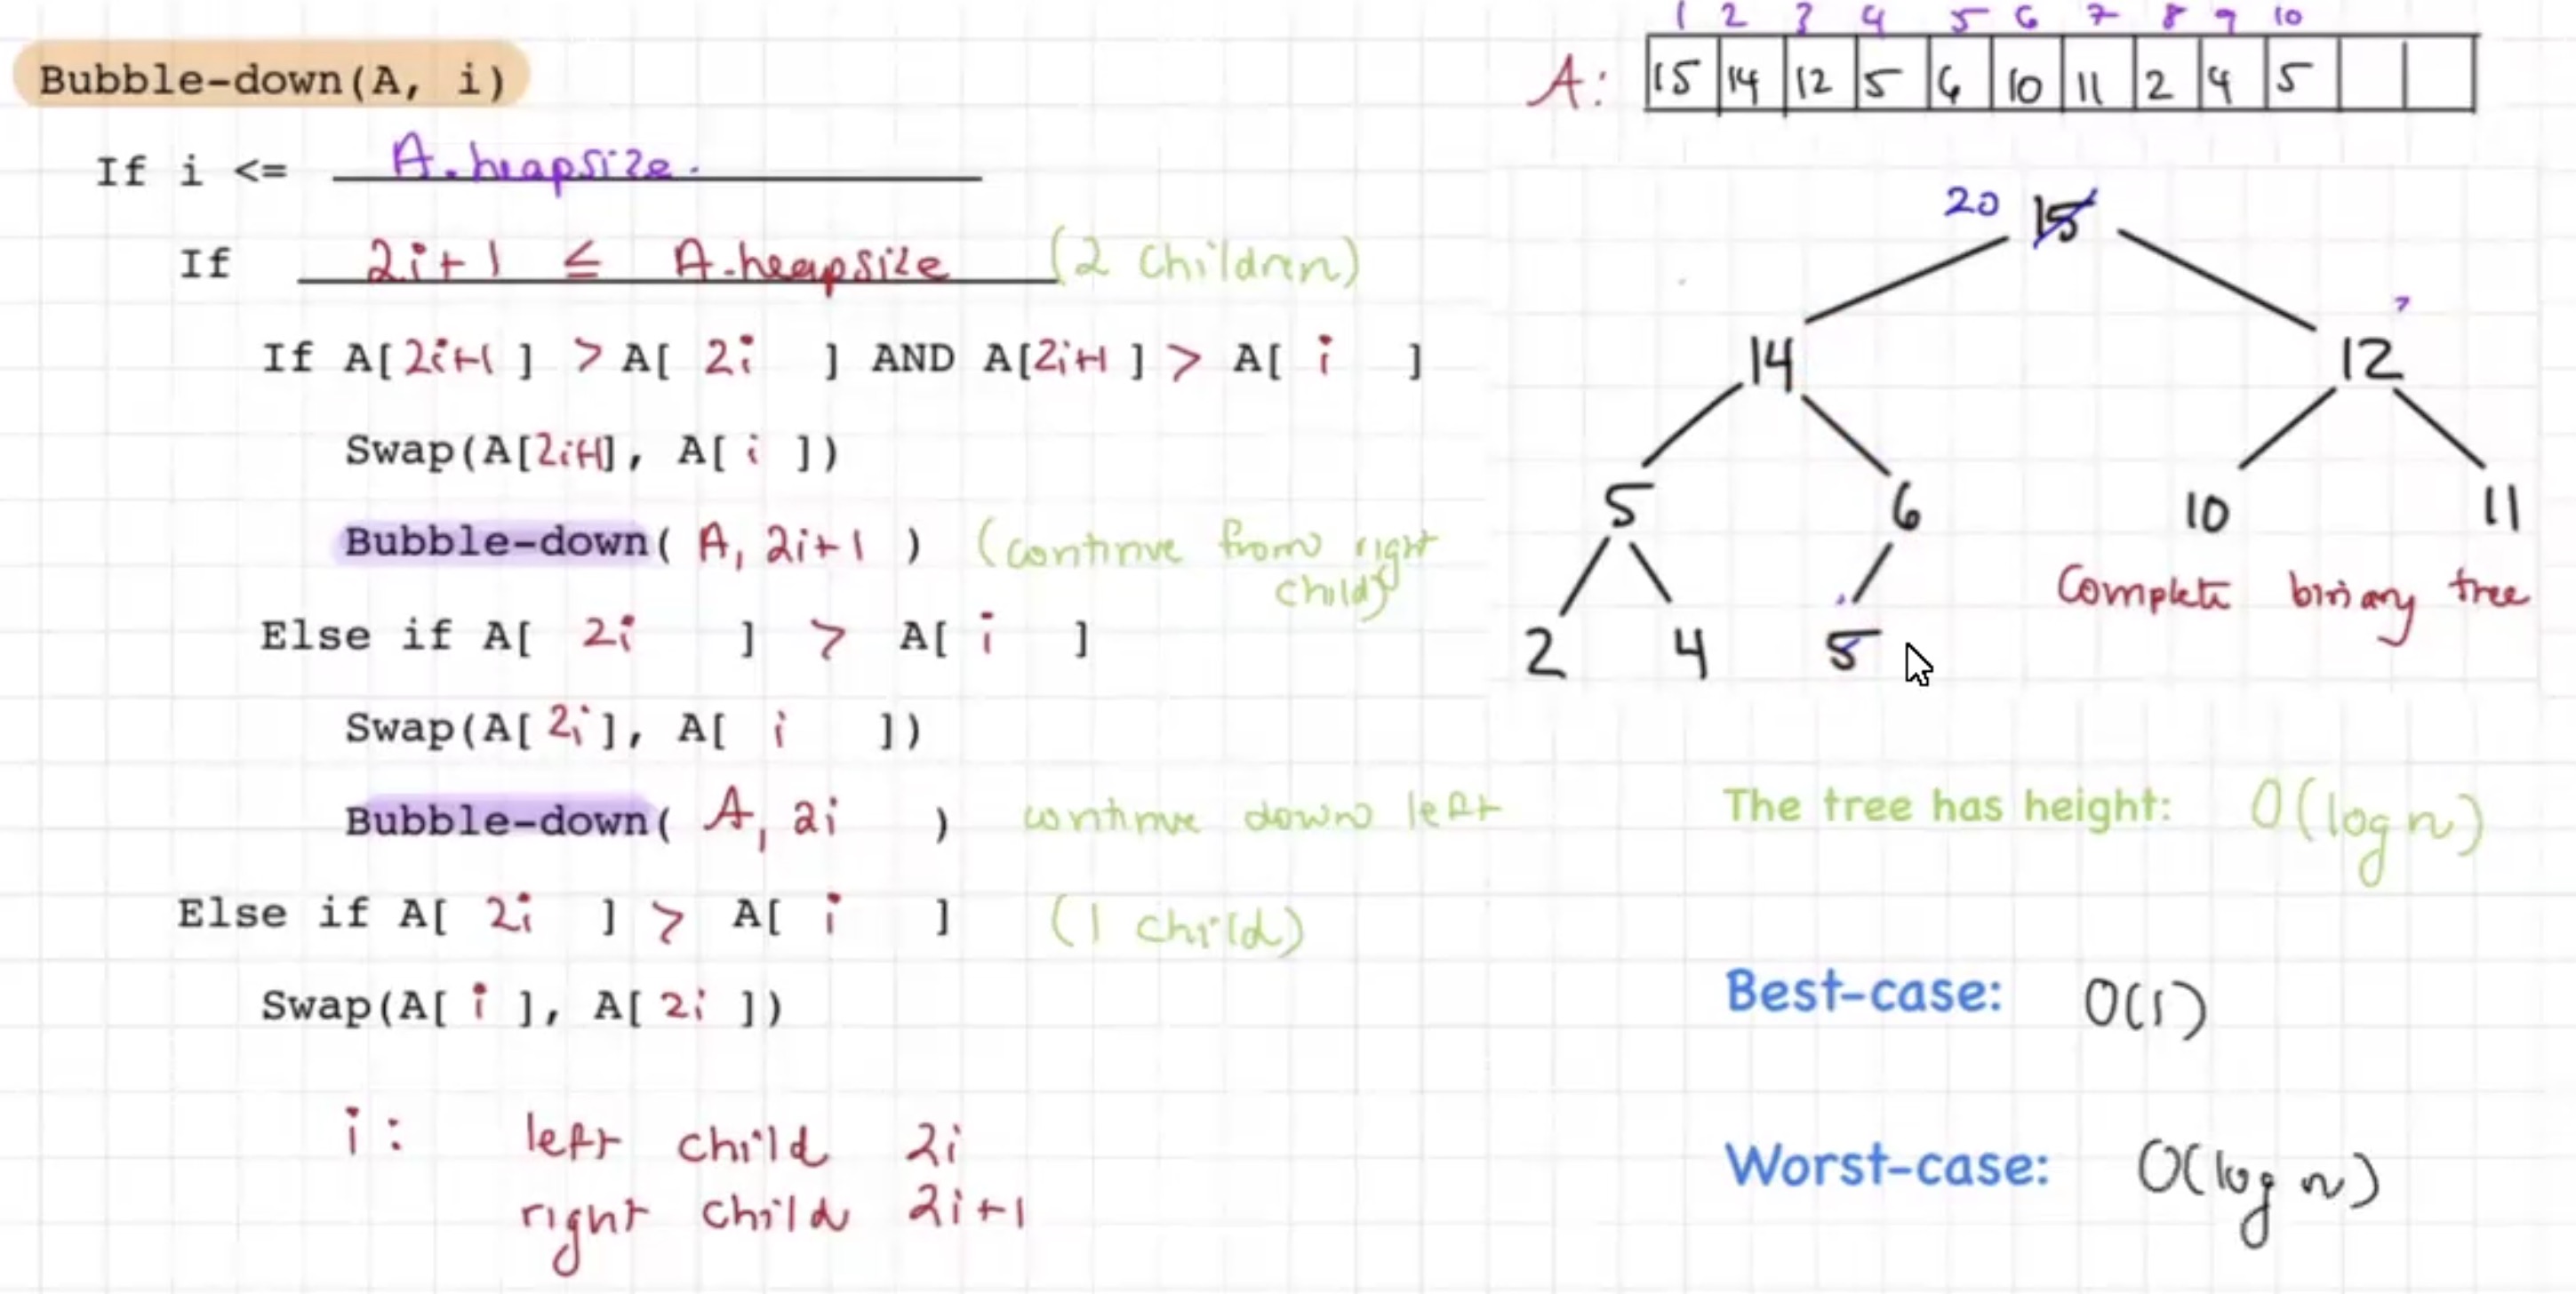 Bubble-down(A, i)
If i <= A.heapsize.
If 2i+1 ≤ A.heapsize (2 children)
If A[2i+1] > A[ 2i ] AND A[2i+1] > A[ i ]
Swap(A[2i+1], A[ i ])
Bubble-down( A, 2i+1 ) (continue from right
child)
Else if A[ 2i ] > A[ i ]
Swap(A[ 2i ], A[ i ])
Bubble-down( A, 2i ) continue down left
Else if A[ 2i ] > A[ i ] (1 child)
Swap(A[ i ], A[ 2i ])
i: left child 2i
right child 2i+1
1 2 3 4 5 6 7 8 9 10
A: 15 14 12 5 6 10 11 2 4 5
20 15
14 12
5 6 10 11
2 4 5
Complete binary tree
The tree has height: O(log n)
Best-case: O(1)
Worst-case: O(log n)